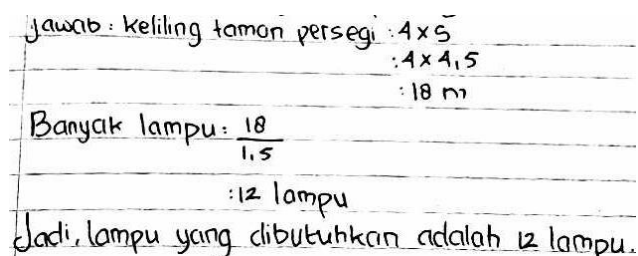 Jawab : Keliling taman persegi : 4 x S
: 4 x 4,5
: 18 m
Banyak lampu : 18
1,5
: 12 lampu
Jadi, lampu yang dibutuhkan adalah 12 lampu.